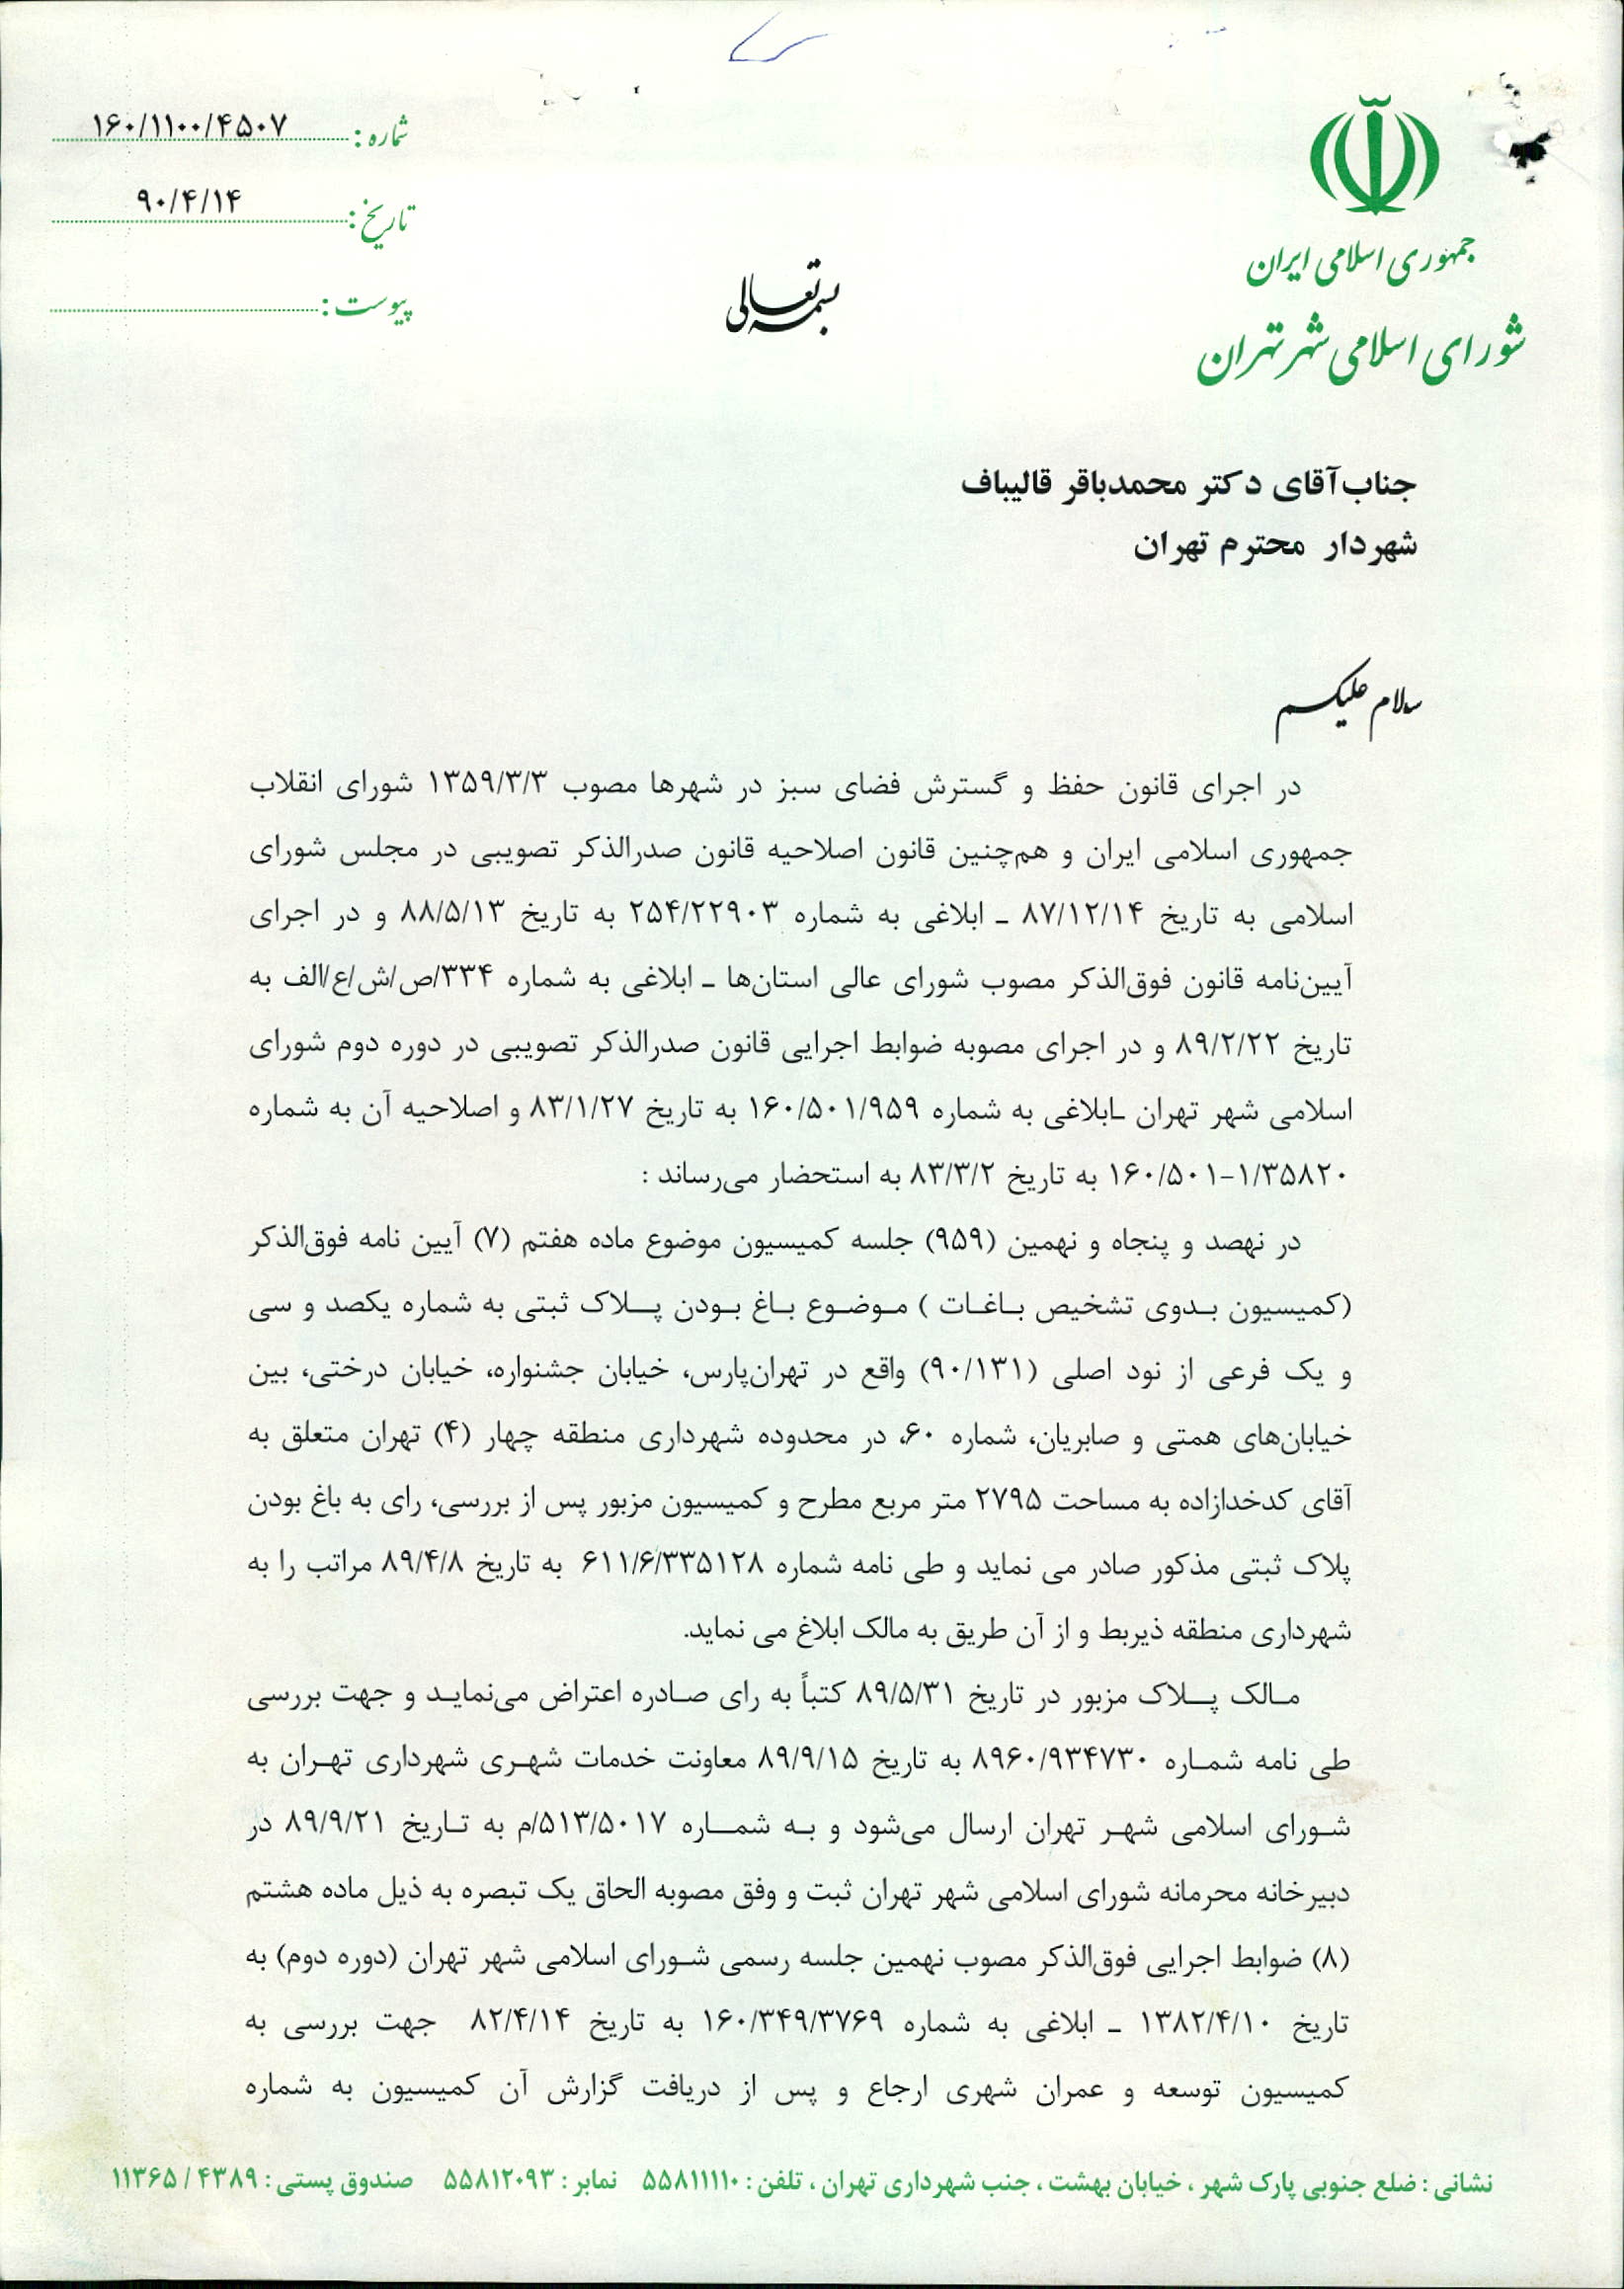 شماره : ۱۶۰/۱۱۰۰/۴۵۰۷
تاریخ : ۹۰/۴/۱۴
پیوست :
جمهوری اسلامی ایران
شورای اسلامی شهر تهران
بسمه تعالی
جناب‌آقای دکتر محمدباقر قالیباف
شهردار محترم تهران
سلام علیکم
در اجرای قانون حفظ و گسترش فضای سبز در شهرها مصوب ۱۳۵۹/۳/۳ شورای انقلاب
جمهوری اسلامی ایران و هم‌چنین قانون اصلاحیه قانون صدرالذکر تصویبی در مجلس شورای
اسلامی به تاریخ ۸۷/۱۲/۱۴ ـ ابلاغی به شماره ۲۵۴/۲۲۹۰۳ به تاریخ ۸۸/۵/۱۳ و در اجرای
آیین‌نامه قانون فوق‌الذکر مصوب شورای عالی استان‌ها ـ ابلاغی به شماره ۳۳۴/ص/ش/ع/الف به
تاریخ ۸۹/۲/۲۲ و در اجرای مصوبه ضوابط اجرایی قانون صدرالذکر تصویبی در دوره دوم شورای
اسلامی شهر تهران ـابلاغی به شماره ۱۶۰/۵۰۱/۹۵۹ به تاریخ ۸۳/۱/۲۷ و اصلاحیه آن به شماره
۱۶۰/۵۰۱-۱/۳۵۸۲۰ به تاریخ ۸۳/۳/۲ به استحضار می‌رساند :
در نهصد و پنجاه و نهمین (۹۵۹) جلسه کمیسیون موضوع ماده هفتم (۷) آیین نامه فوق‌الذکر
(کمیسیون بـدوی تشخیص بـاغـات ) مـوضـوع بـاغ بـودن پـــلاک ثبتی به شماره یکصد و سی
و یک فرعی از نود اصلی (۹۰/۱۳۱) واقع در تهران‌پارس، خیابان جشنواره، خیابان درختی، بین
خیابان‌های همتی و صابریان، شماره ۶۰، در محدوده شهرداری منطقه چهار (۴) تهران متعلق به
آقای کدخدازاده به مساحت ۲۷۹۵ متر مربع مطرح و کمیسیون مزبور پس از بررسی، رای به باغ بودن
پلاک ثبتی مذکور صادر می نماید و طی نامه شماره ۶۱۱/۶/۳۳۵۱۲۸ به تاریخ ۸۹/۴/۸ مراتب را به
شهرداری منطقه ذیربط و از آن طریق به مالک ابلاغ می نماید.
مـالک پـــلاک مزبور در تاریخ ۸۹/۵/۳۱ کتباً به رای صـادره اعتراض می‌نمایـد و جهت بررسی
طی نامه شمـاره ۸۹۶۰/۹۳۴۷۳۰ به تاریخ ۸۹/۹/۱۵ معاونت خدمات شهـری شهرداری تهـران به
شـورای اسلامی شهـر تهران ارسال می‌شود و بـه شمـــاره ۵۱۳/۵۰۱۷/م به تـاریخ ۸۹/۹/۲۱ در
دبیرخانه محرمانه شورای اسلامی شهر تهران ثبت و وفق مصوبه الحاق یک تبصره به ذیل ماده هشتم
(۸) ضوابط اجرایی فوق‌الذکر مصوب نهمین جلسه رسمی شـورای اسلامی شهر تهران (دوره دوم) به
تاریخ ۱۳۸۲/۴/۱۰ ـ ابلاغی به شماره ۱۶۰/۳۴۹/۳۷۶۹ به تاریخ ۸۲/۴/۱۴ جهت بررسی به
کمیسیون توسعه و عمران شهری ارجاع و پس از دریافت گزارش آن کمیسیون به شماره
نشانی : ضلع جنوبی پارک شهر ، خیابان بهشت ، جنب شهرداری تهران ، تلفن : ۵۵۸۱۱۱۱۰ نمابر : ۵۵۸۱۲۰۹۳ صندوق پستی : ۴۳۸۹ / ۱۱۳۶۵